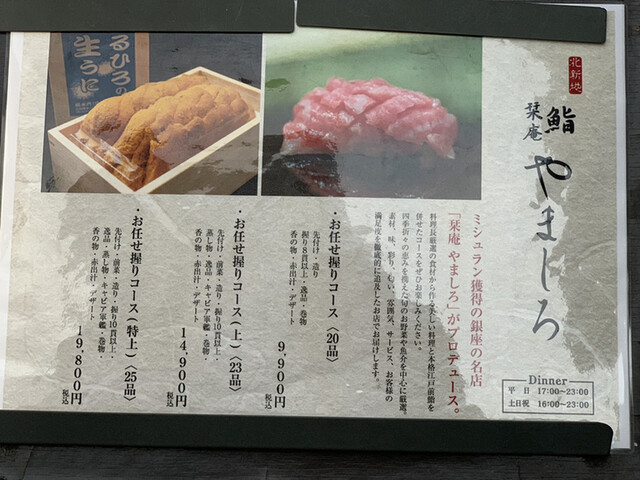 北新地
鮨
栞庵
やましろ
ミシュラン獲得の銀座の名店
「栞庵 やましろ」がプロデュース。
料理長厳選の食材から作る美しい料理と本格江戸前鮨を
併せたコースをぜひお楽しみください。
四季折々の恵みを携えた旬のお野菜や魚介を中心に厳選。
素材、味、彩り、匂い、雰囲気、サービス、お客様の
満足度を徹底的に追及したお店でお届けします。
・お任せ握りコース〈20品〉
先付け・造り
握り8貫以上・逸品・巻物
香の物・赤出汁・デザート
9,900円
税込
・お任せ握りコース(上)〈23品〉
先付け・前菜・造り・握り10貫以上・
蒸し物・逸品・キャビア軍艦・巻物・
香の物・赤出汁・デザート
14,900円
税込
・お任せ握りコース(特上)〈25品〉
先付け・前菜・造り・握り10貫以上・
逸品・蒸し物・キャビア軍艦・巻物・
香の物・赤出汁・デザート
19,800円
税込
Dinner
平 日 17:00~23:00
土日祝 16:00~23:00
るひろの
生うに